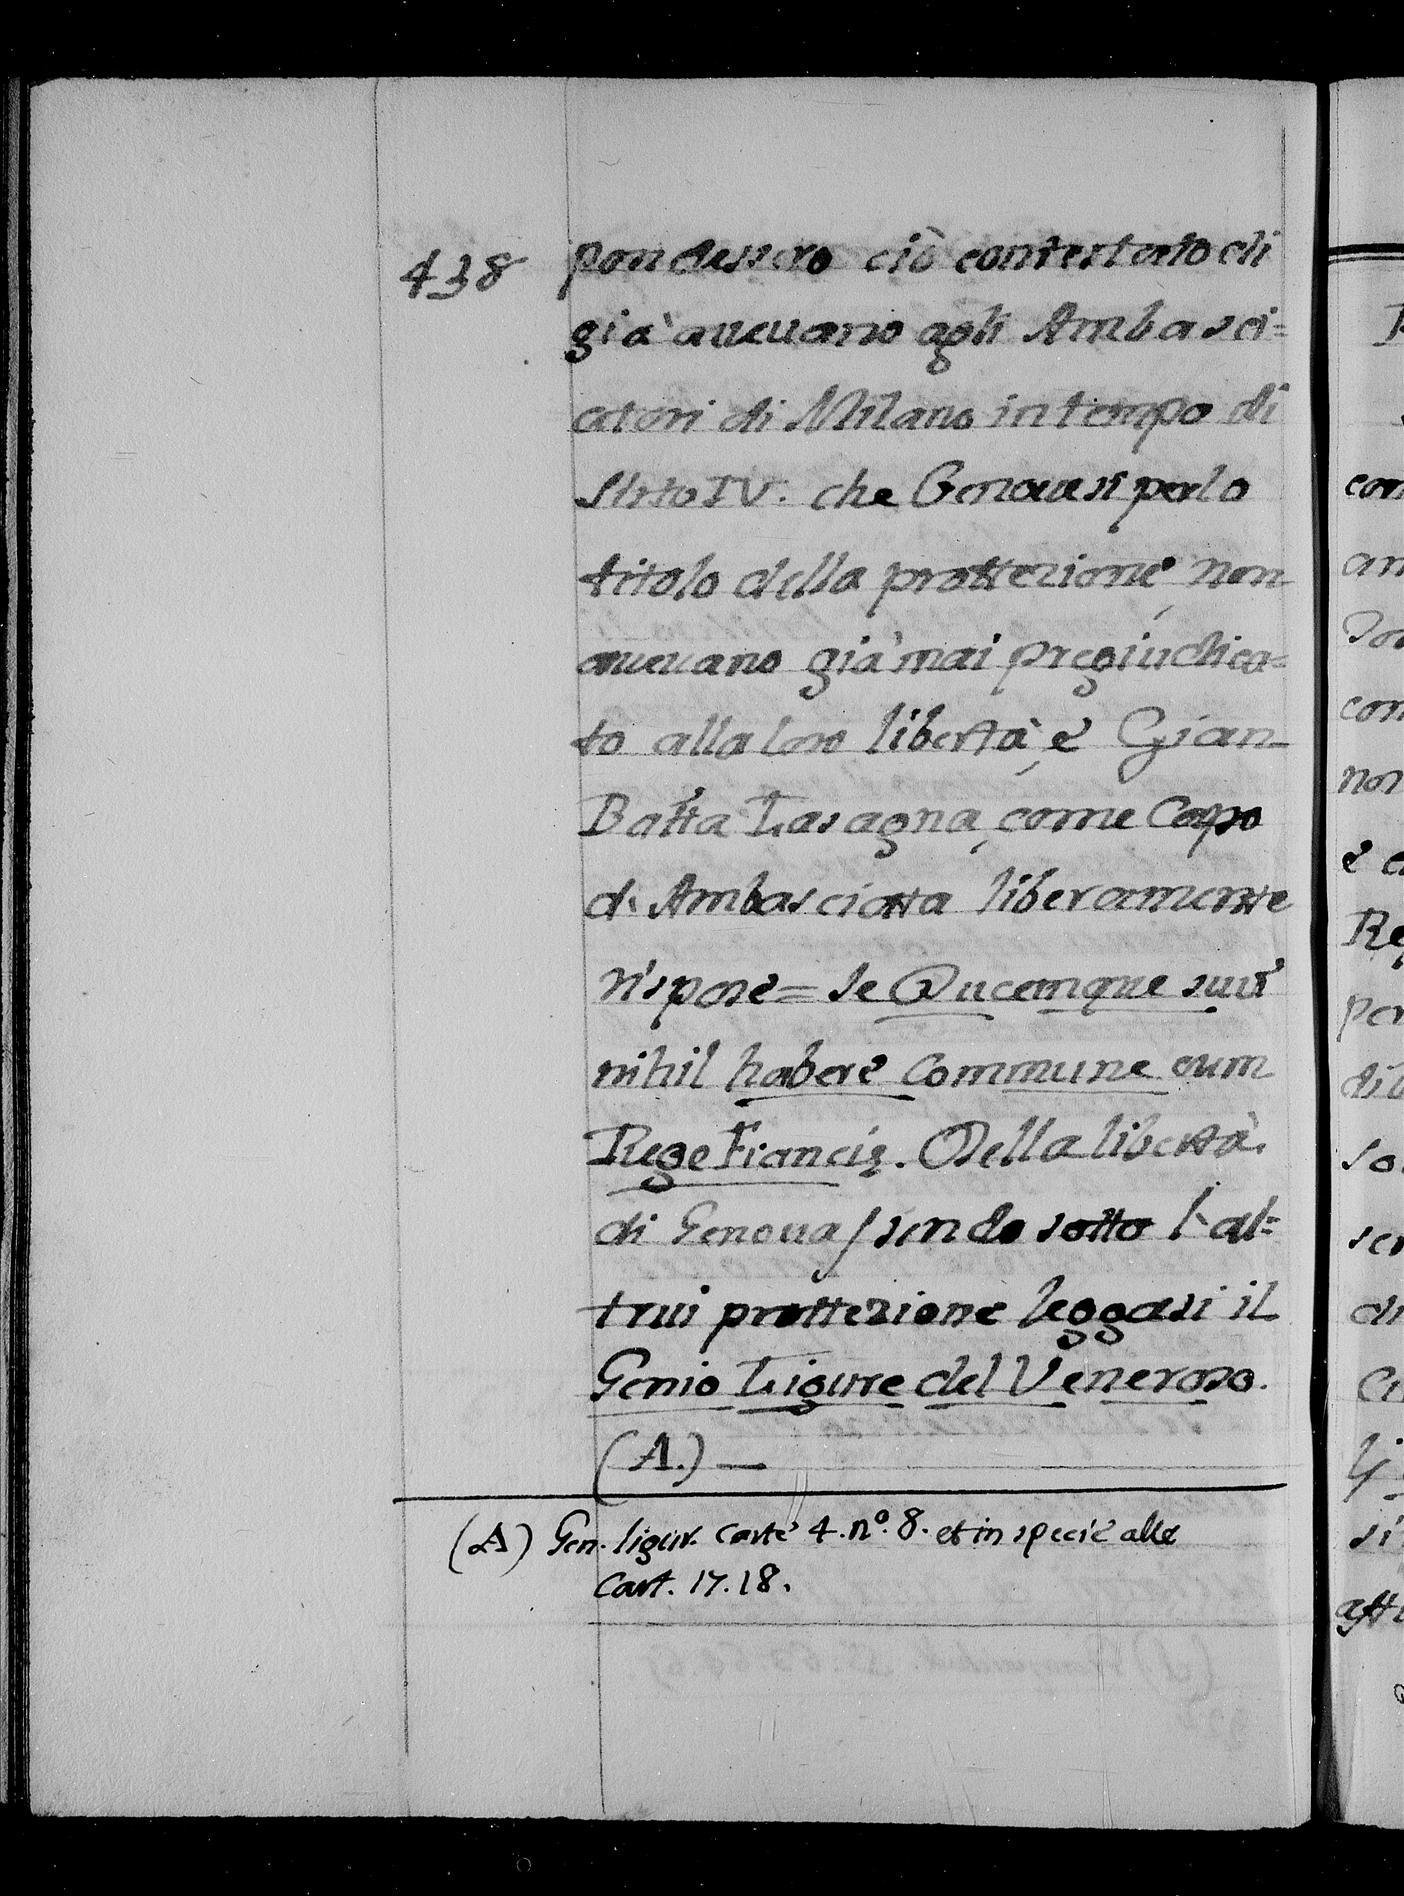 438
pondessero ciò contestato di
già aueuano agli Ambasci=
atori di Milano in tempo di
Sisto IV. che Genouesi per lo
titolo della prottezione, non
aueuano già mai pregiudica=
to alla loro libertà, e Gian
Batta Lasagna, come Capo
d'Ambasciatta liberamente
rispose = se Ducemque suũ
nihil habere commune cum
Rege Francię. Della libertà
di Genoua / sendo sotto l'al=
trui prottezione leggasi il
Genio Ligure del Veneroso.
(A.) —
(A) Gen. ligur. carte 4. nº. 8. et in specie alle
Cart. 17. 18.